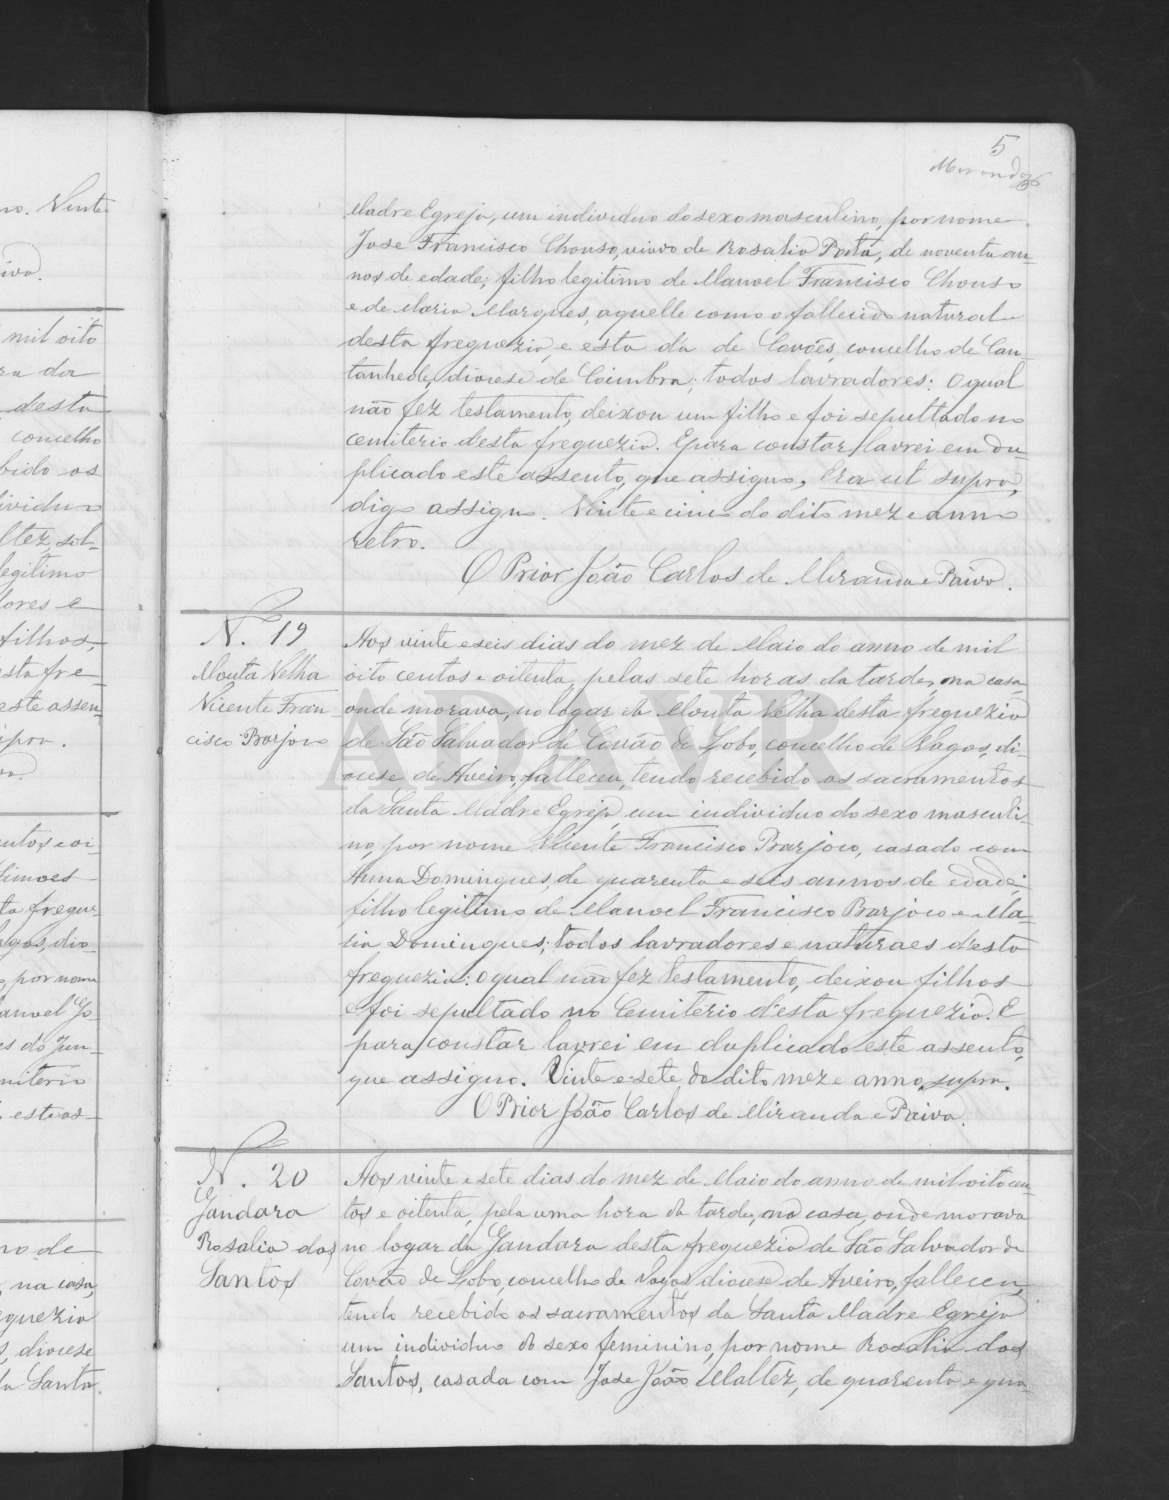 5
Madre Egreja, um individuo do sexo masculino, por nome
Jose Francisco Chouso, viuvo de Rosalia Porta, de noventa an-
nos de edade, filho legitimo de Manoel Francisco Chouso
e de Maria Marques, aquelle como o fallecido natural
desta freguezia, e esta da de Covões, concelho de Can-
tanhede, diocese de Coimbra; todos lavradores: O qual
não fez testamento, deixou um filho e foi sepultado no
cemiterio d'esta freguezia. E para constar lavrei em du-
plicado este assento, que assigno, Era ut supra,
digo assigno. Vinte e cinco do dito mez e anno
retro.
O Prior João Carlos de Miranda e Paiva.
N. 19
Mouta Velha
Vicente Fran-
cisco Barjoco
Aos vinte e seis dias do mez de Maio do anno de mil
oito centos e oitenta, pelas sete horas da tarde, na casa
onde morava, no logar da Mouta Velha desta freguezia
de São Salvador de Covão do Lobo, concelho de Vagos, di-
ocese de Aveiro, falleceu, tendo recebido os sacramentos
da Santa Madre Egreja, um individuo do sexo masculi-
no, por nome Vicente Francisco Barjoco, casado com
Anna Domingues, de quarenta e seis annos de edade,
filho legitimo de Manoel Francisco Barjoco e Ma-
ria Domingues; todos lavradores e naturaes d'esta
freguezia: o qual não fez testamento, deixou filhos
e foi sepultado no Cemiterio d'esta freguezia. E
para constar lavrei em duplicado este assento,
que assigno. Vinte e sete do dito mez e anno supra.
O Prior João Carlos de Miranda e Paiva.
N. 20
Gandara
Rosalia dos
Santos
Aos vinte e sete dias do mez de Maio do anno de mil oito cen-
tos e oitenta, pela uma hora da tarde, na casa, onde morava
no logar da Gandara desta freguezia de São Salvador de
Covão do Lobo, concelho de Vagos, diocese de Aveiro, falleceu,
tendo recebido os sacramentos da Santa Madre Egreja
um individuo do sexo feminino, por nome Rosalia dos
Santos, casada com Jose João Maltez, de quarenta e qua-
ADAVR